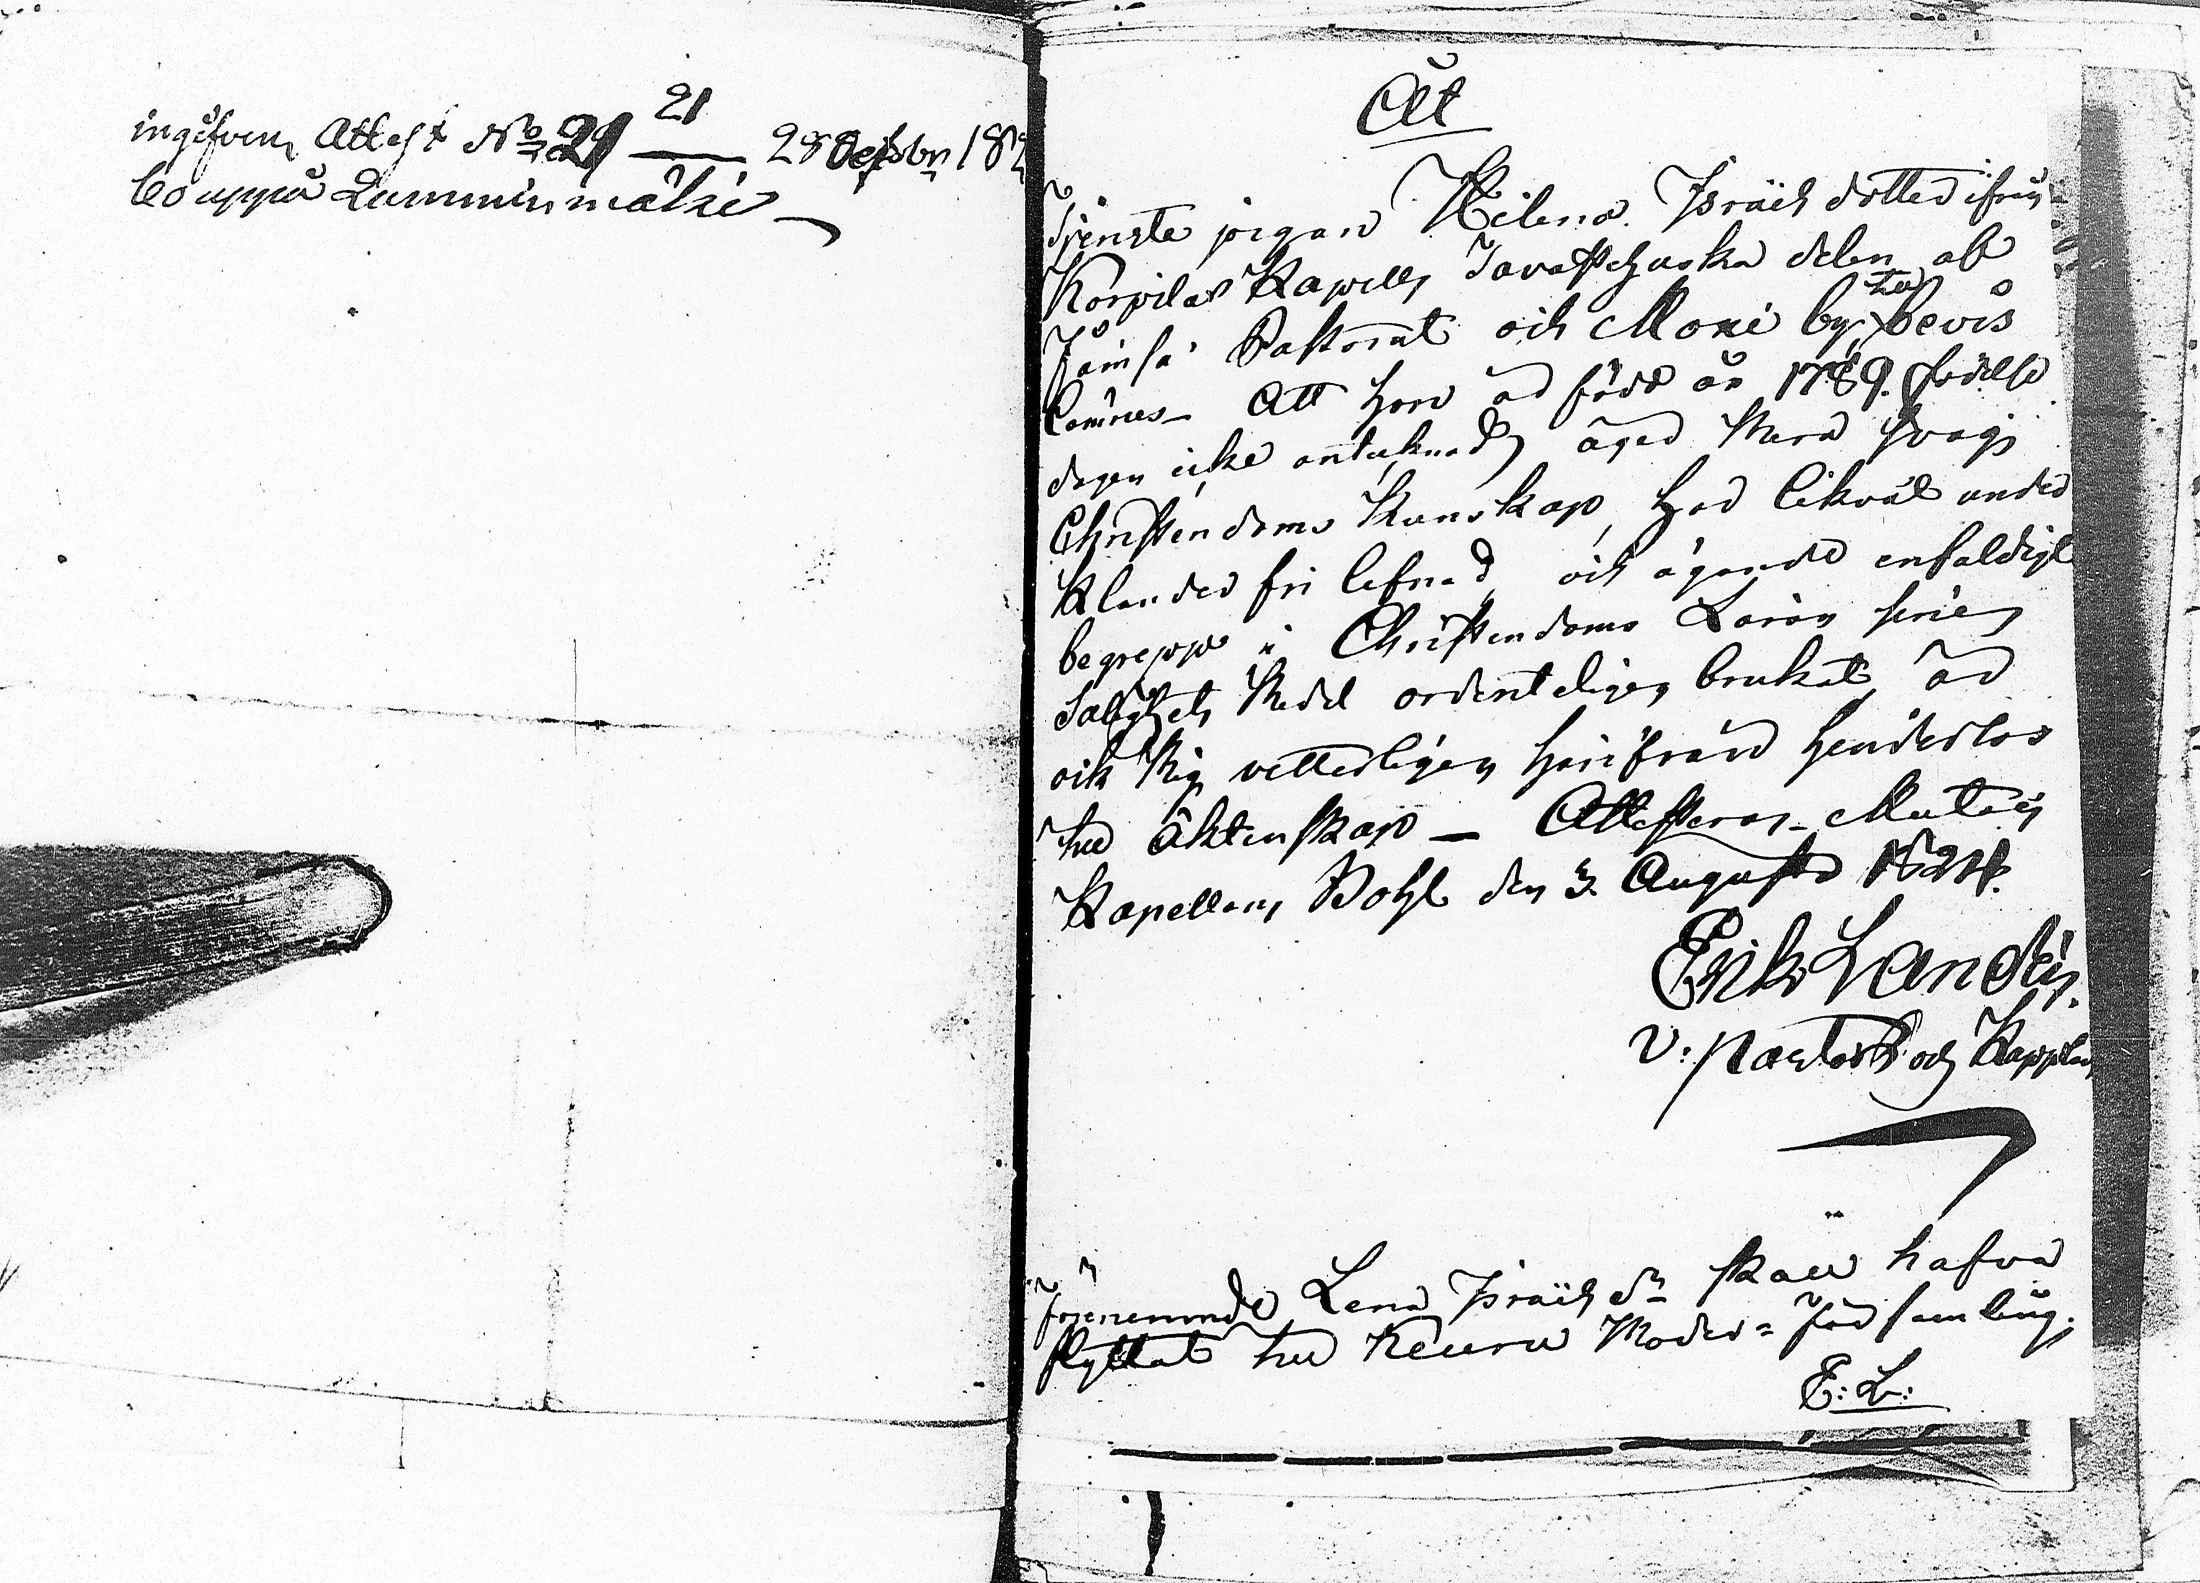 ingifven Attest No 21 21 28 Octobr 182
bo uppå Lumminmäki
Åt
Tjenste pigan Helena Israels dotter ifrån
Korpilax Kapells Tavastehuska delen af
Jämsä Pastorat och Moxi by, till bevis
lämnes att hon är född år 1789. födelse
dagen icke antecknad, äger mera svag
Christendoms kunskap, har likväl under
klander fri lefnad, och ägande enfaldigt
begrepp i Christendoms Läran sine
Salighets medel ordenteligen brukat, är
och mig vetterligen härifrån hinderlös
till äktenskap — Attesteras Muta
Kapellans Bohl den 3. Augusti 1824.
Erik Landén.
V: Pastor och Kapplan
Förenemnde Lena Israels dr skall hafva
flyttat till Keuru Moder = församling.
E: L: